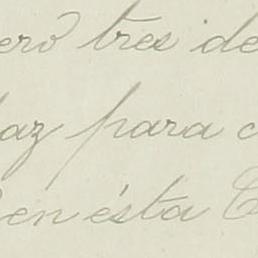 ero tres de
laz para c
en ésta C